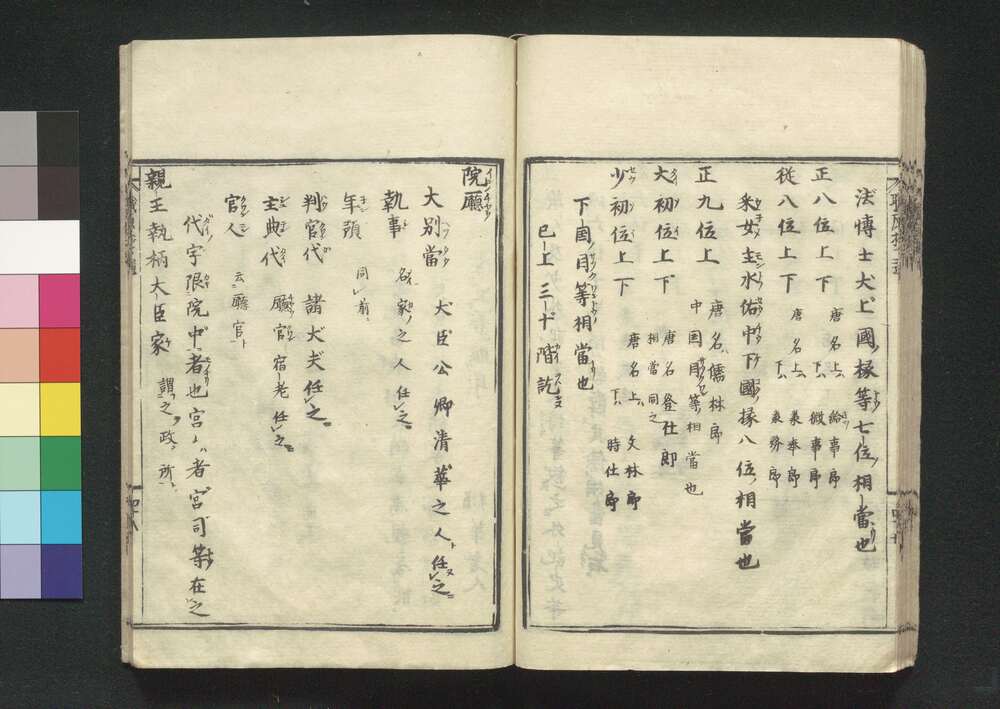 法博士大上國掾等七位相當也
正八位上下 唐名上ハ給事郎 下ハ徴事郎
從八位上下 唐名上ハ兼奉郎 下ハ兼務郎
采女主水佑中下國掾八位相當也
正九位上 唐名儒林郎 中国目等相當也
大初位上下 唐名登仕郎 相當同之
少初位上下 唐名上ハ文林郎 下ハ時仕郎
下国目等相當也
已上三十階訖
院廳
大別當 大臣公卿清華之人任之
執事 名家之人任之
年預 同前
判官代 諸大夫任之
主典代 廳官宿老任之
官人 云廳官
代字限院中者也宮ハ者宮司等在之
親王執柄大臣家 謂之政所